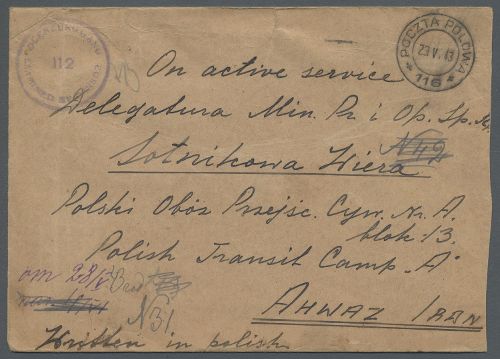 112
POCZTA POLOWA
23 V. 43
* 116 *
On active service
Delegatura Min. Pr. i Op. Sp. 
N42
Sotnikowa Wiera
Polski Obóz Przejśc. Cyw. Nr. A.
blok 13.
Polish Transit Camp "A"
om 28/V
N31
AHWAZ IRAN
Written in polish